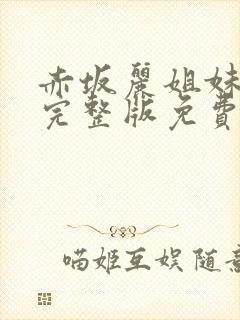 赤坂麗姐妹
完整版免費
喵姬互娱随意